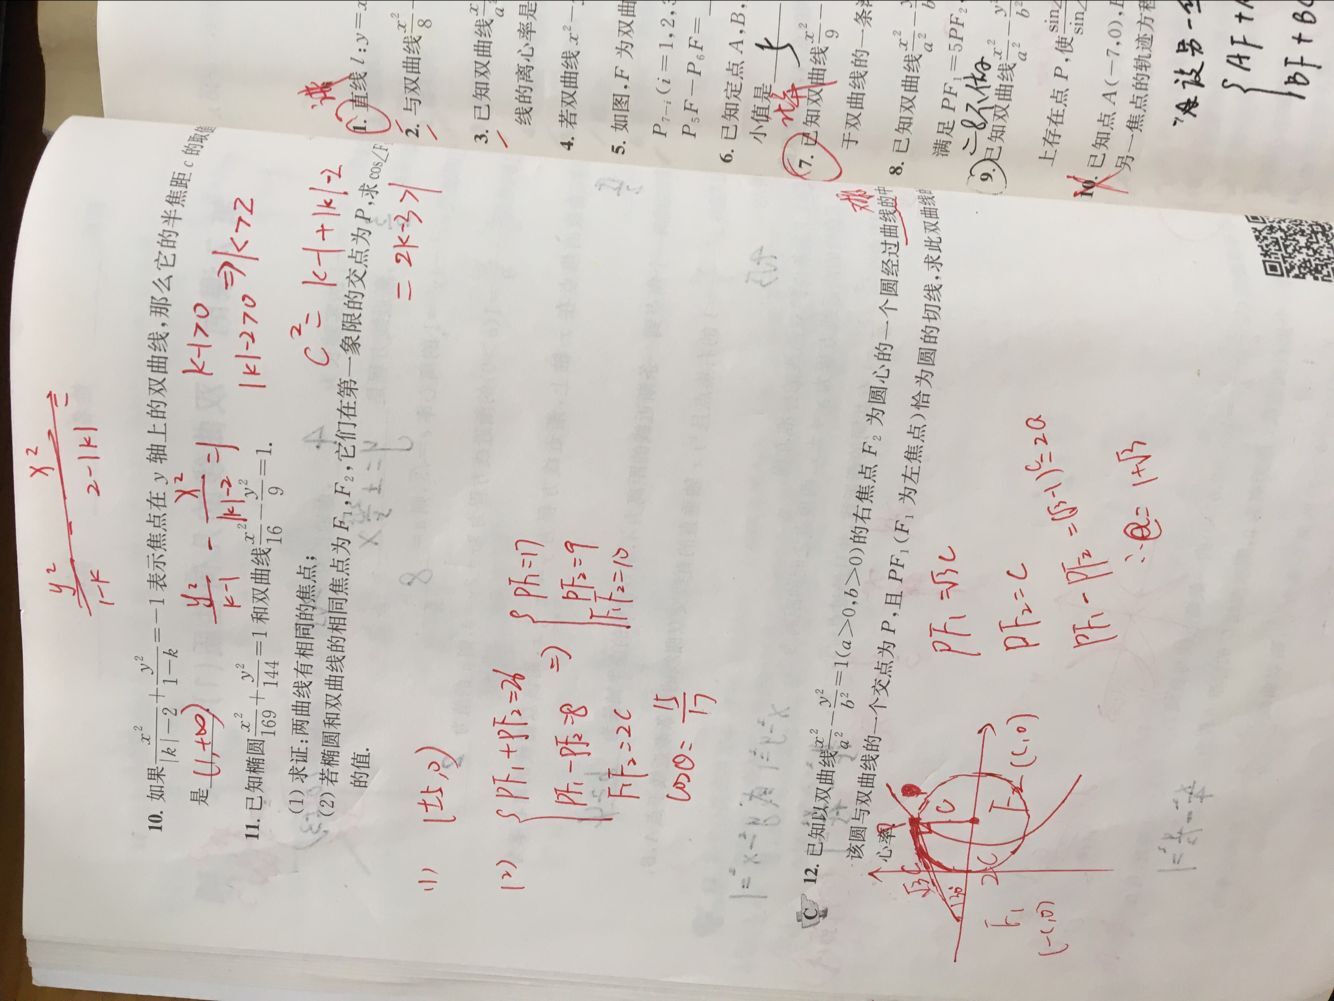 y²/(1-k) - x²/(2-|k|) =
10. 如果x²/(|k|-2)+y²/(1-k)=-1表示焦点在 y 轴上的双曲线,那么它的半焦距 c 的取值
是 (1,+∞)
y²/(k-1) - x²/(|k|-2) =1
k-1>0
|k|-2>0 ⇒k>2
c²= k-1+|k|-2
= 2k-3>1
11. 已知椭圆x²/169+y²/144=1和双曲线x²/16-y²/9=1.
(1) 求证:两曲线有相同的焦点;
(2) 若椭圆和双曲线的相同焦点为 F₁,F₂,它们在第一象限的交点为 P,求 cos∠F
的值.
(1) (±5,0)
(2) { PF₁+PF₂=26
PF₁-PF₂=8
F₁F₂=2c
⇒ { PF₁=17
PF₂=9
F₁F₂=10
cosθ= 15/17
C 12. 已知以双曲线x²/a²-y²/b²=1(a>0,b>0)的右焦点 F₂ 为圆心的一个圆经过曲线的中
该圆与双曲线的一个交点为 P,且 PF₁(F₁ 为左焦点)恰为圆的切线,求此双曲线的
心率.
√3c
c
30°
2c
F₁
(-c,0)
F₂ (c,0)
PF₁=√3c
PF₂=c
PF₁-PF₂=(√3-1)c=2a
∴e=1+√3
1. 直线 l:y=x
2. 与双曲线x²/8-
3. 已知双曲线x²/a²
线的离心率是
4. 若双曲线 x²-
5. 如图,F 为双曲
P₇₋ᵢ(i=1,2,3
P₅F-P₆F=
6. 已知定点 A,B,
小值是 5
7. 已知双曲线x²/9-
于双曲线的一条渐
8. 已知双曲线x²/a²-y²/b²
满足 PF₁=5PF₂
9. 已知双曲线x²/a²-y²/b²
上存在点 P,使sin∠/sin∠
10. 已知点 A(-7,0),
另一焦点的轨迹方程
设另一
{ AF+A
BF+BC